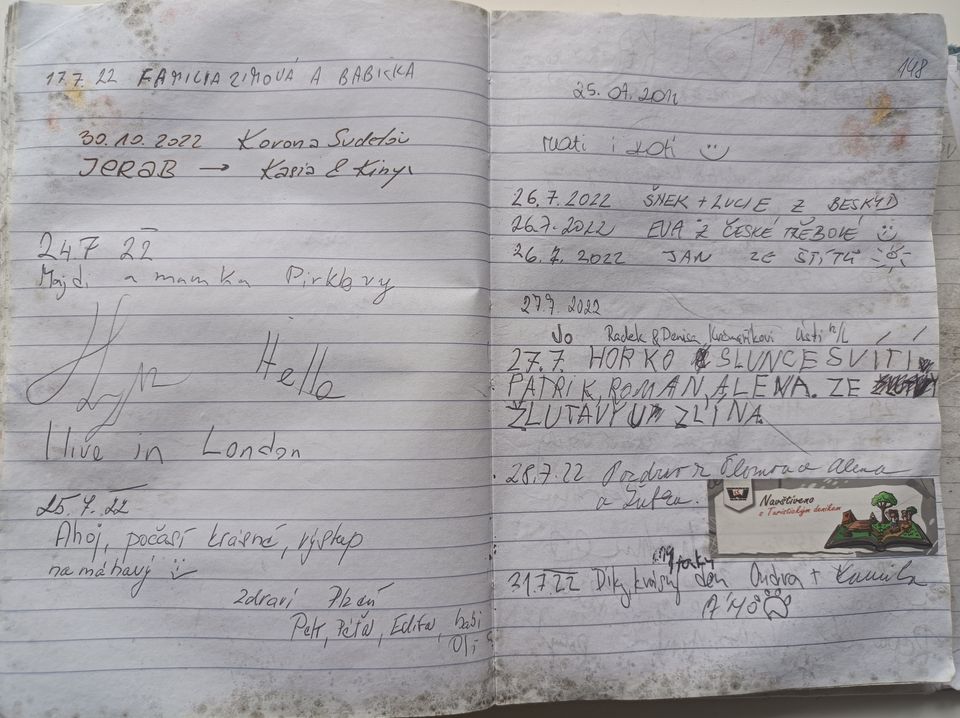 17.7.22 FAMILIA ZIMOVÁ A BABIČKA
30.10.2022 Korona Sudetów
JERAB → Kasia & Kinga
24.7 22
Majdi a mamka Pirklovy
Hello
I live in London
25.7.22
Ahoj, počasí krásné, výstup
namáhavý
Zdraví Plzeň
Petr, Péťa, Edita, babi
Oli
148
25.07.2022
i
26.7.2022 ŠNEK + LUCIE Z BESKYD
26.7.2022 EVA Z ČESKÉ TŘEBOVÉ
26.7.2022 JAN ZE ŠTÍTŮ
27.7.2022
Jo Radek & Denisa Ústí n/L
27.7. HORKO SLUNCE SVITI
PATRIK, ROMAN, ALENA. ZE
ŽLUTAVY U ZLÍNA
28.7.22 Pozdrav z Olomouce Alena
a
Navštíveno
s Turistickým deníkem
31.7.22 Díky, krásný den Ondra + Kamila